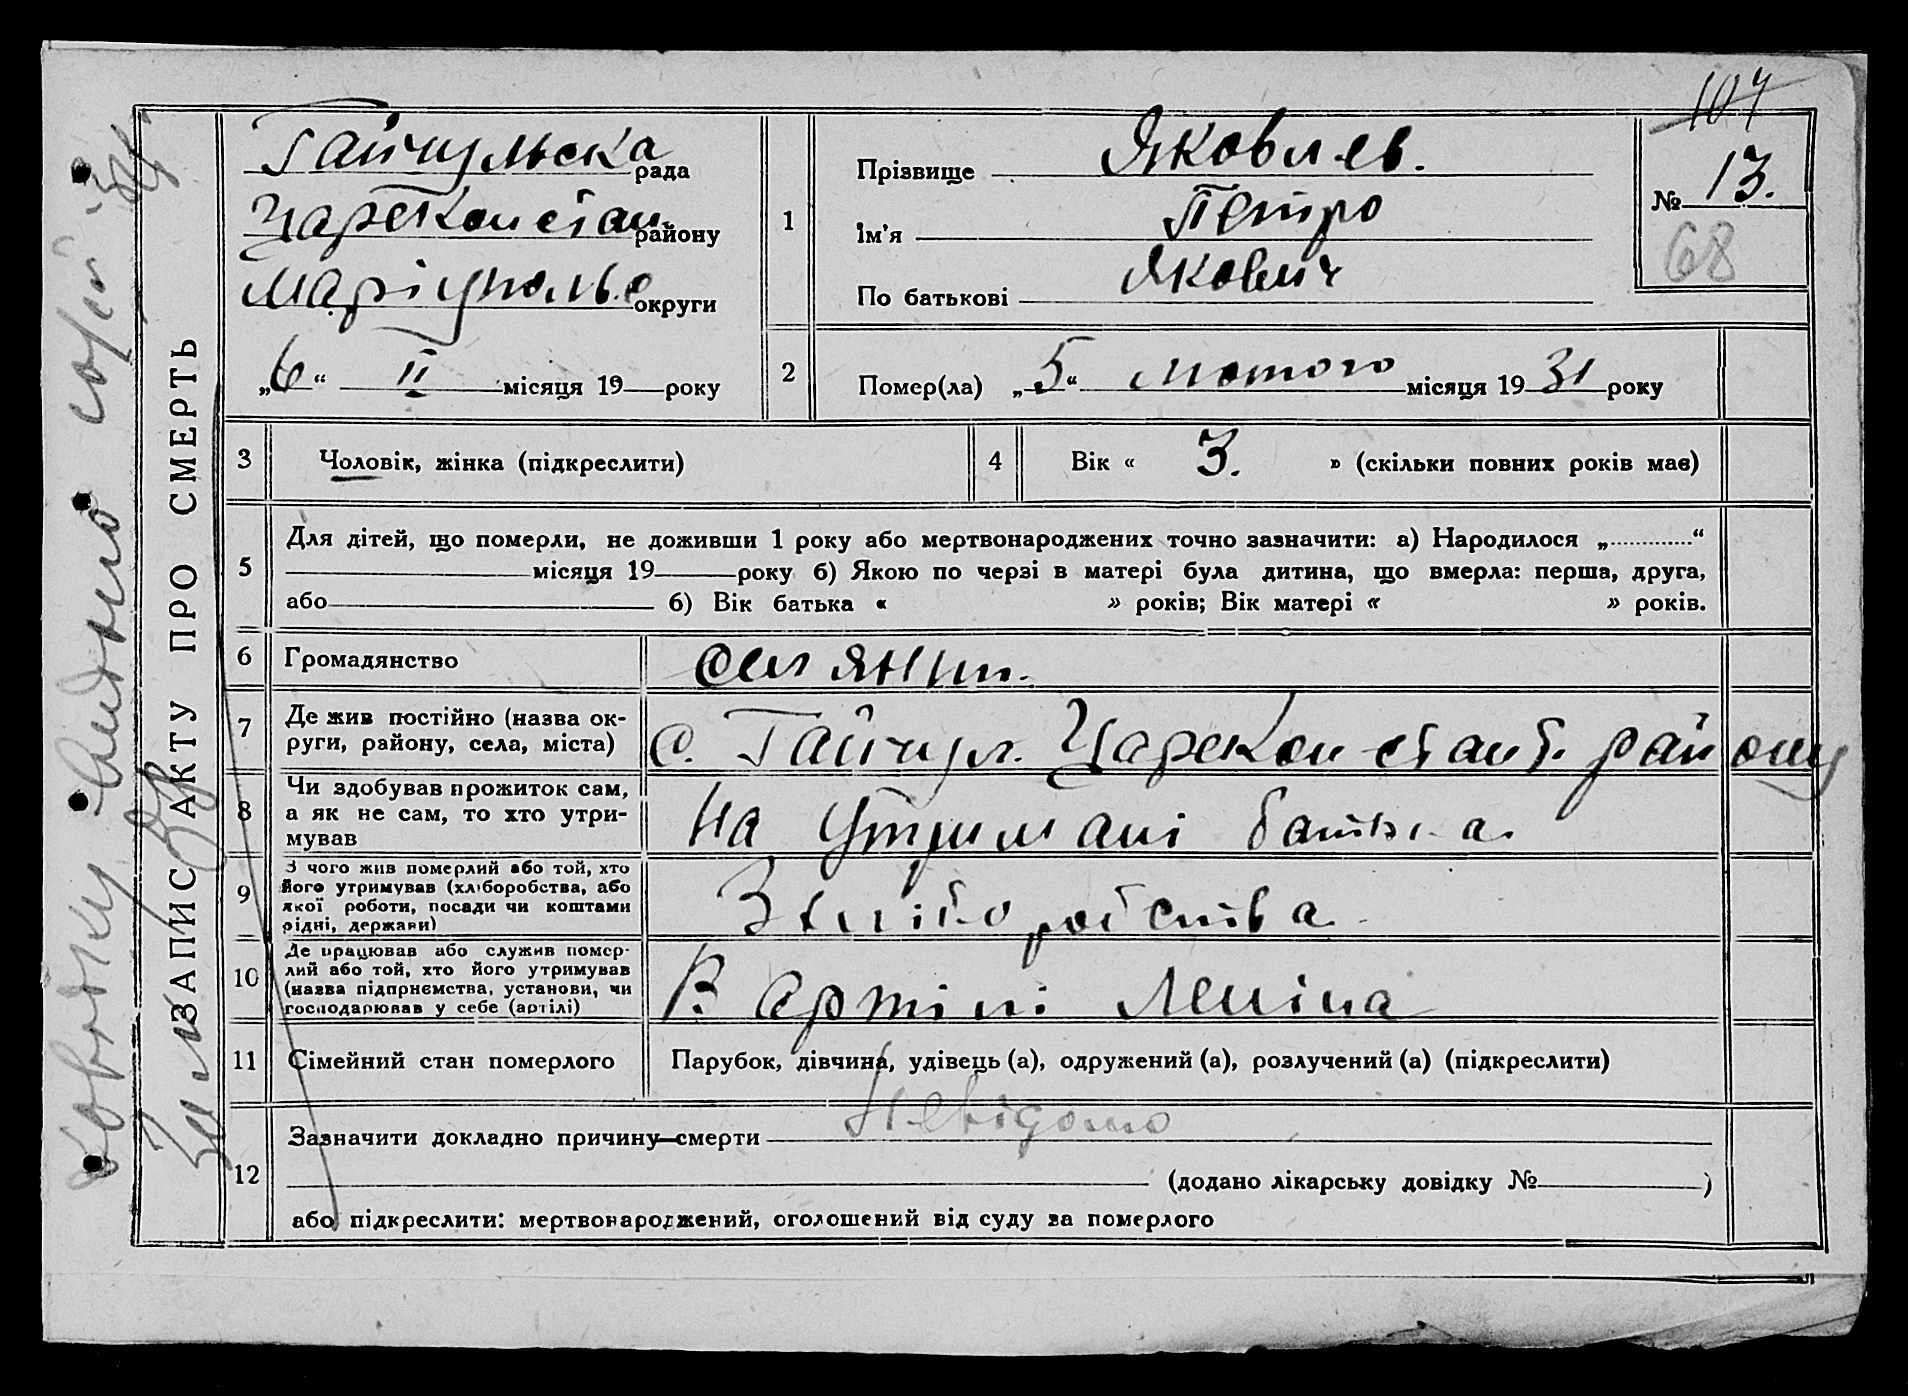 107
ЗАПИС АКТУ ПРО СМЕРТЬ
Гайчульска рада
Цареконстан району
Маріупольс округи
„6“ II місяця 19 року
1
Прізвище Яковлев.
Ім'я Петро
По батькові Якович
№ 13.
68
2
Помер(ла) „5“ лютого місяця 1931 року
3
Чоловік, жінка (підкреслити)
4
Вік « 3. » (скільки повних років має)
5
Для дітей, що померли, не доживши 1 року або мертвонароджених точно зазначити: а) Народилося „.............“
місяця 19 року б) Якою по черзі в матері була дитина, що вмерла: перша, друга,
або б) Вік батька « » років; Вік матері « » років.
6
Громадянство
селянин.
7
Де жив постійно (назва ок-
руги, району, села, міста)
с. Гайчул. Цареконстант. району
8
Чи здобував прожиток сам,
а як не сам, то хто утри-
мував
На утримані батька.
9
З чого жив померлий або той, хто
його утримував (хліборобства, або
якої роботи, посади чи коштами
рідні, держави)
З хліборобства
10
Де працював або служив помер-
лий або той, хто його утримував
(назва підприємства, установи, чи
господарював у себе (артілі)
В артілі Леніна
11
Сімейний стан померлого
Парубок, дівчина, удівець (а), одружений (а), розлучений (а) (підкреслити)
12
Зазначити докладно причину смерти Невідомо
(додано лікарську довідку № )
або підкреслити: мертвонароджений, оголошений від суду за померлого